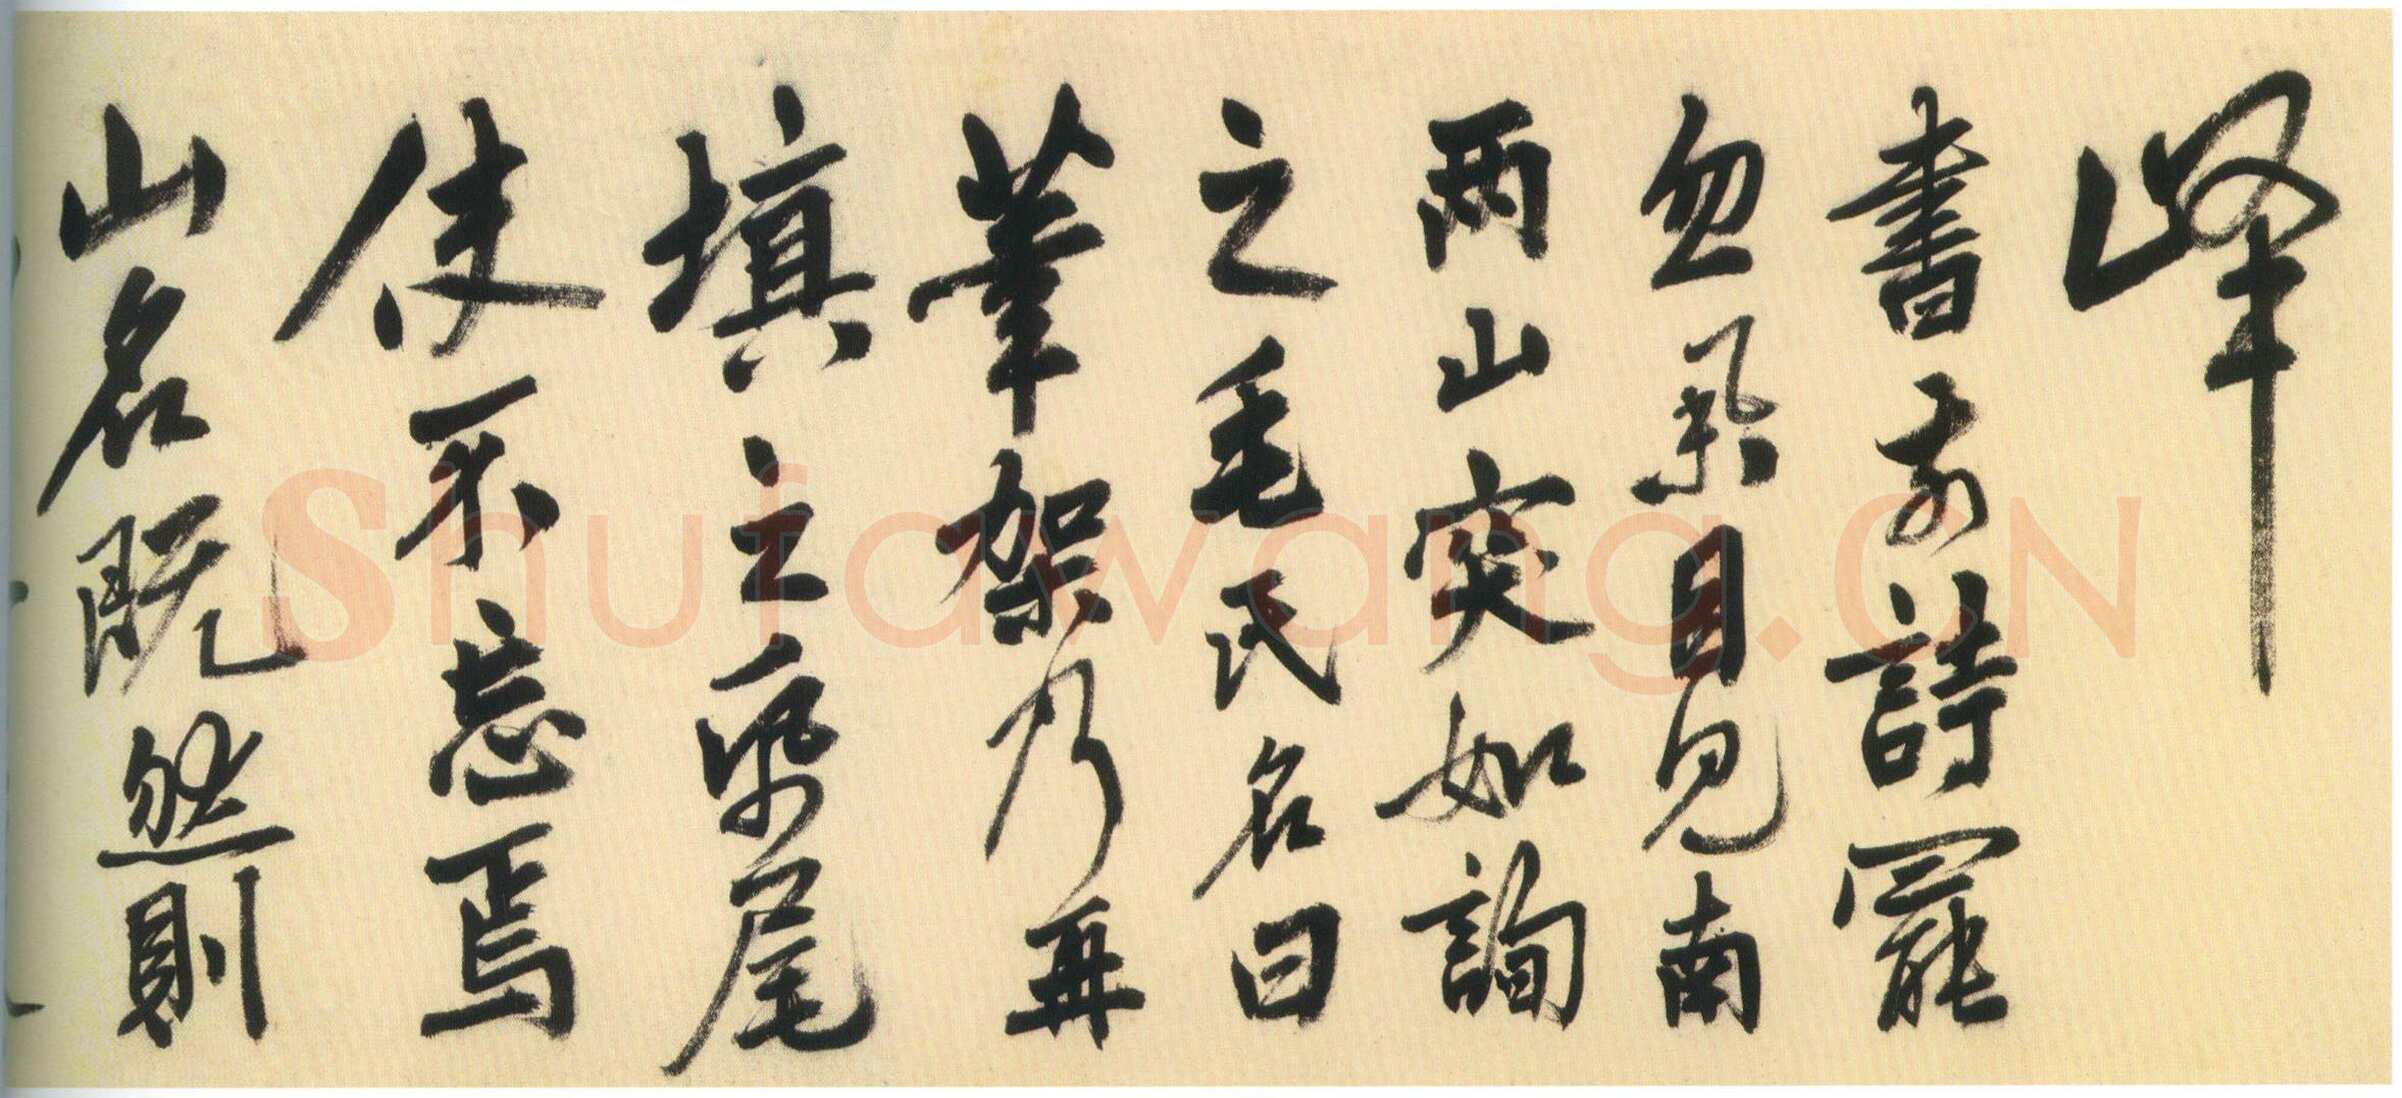 峰
書前詩罷
忽舉目見南
兩山突如詢
之毛氏名曰
筆架乃再
填之帋尾
使不忘焉
山名既然則
Shufawang.CN